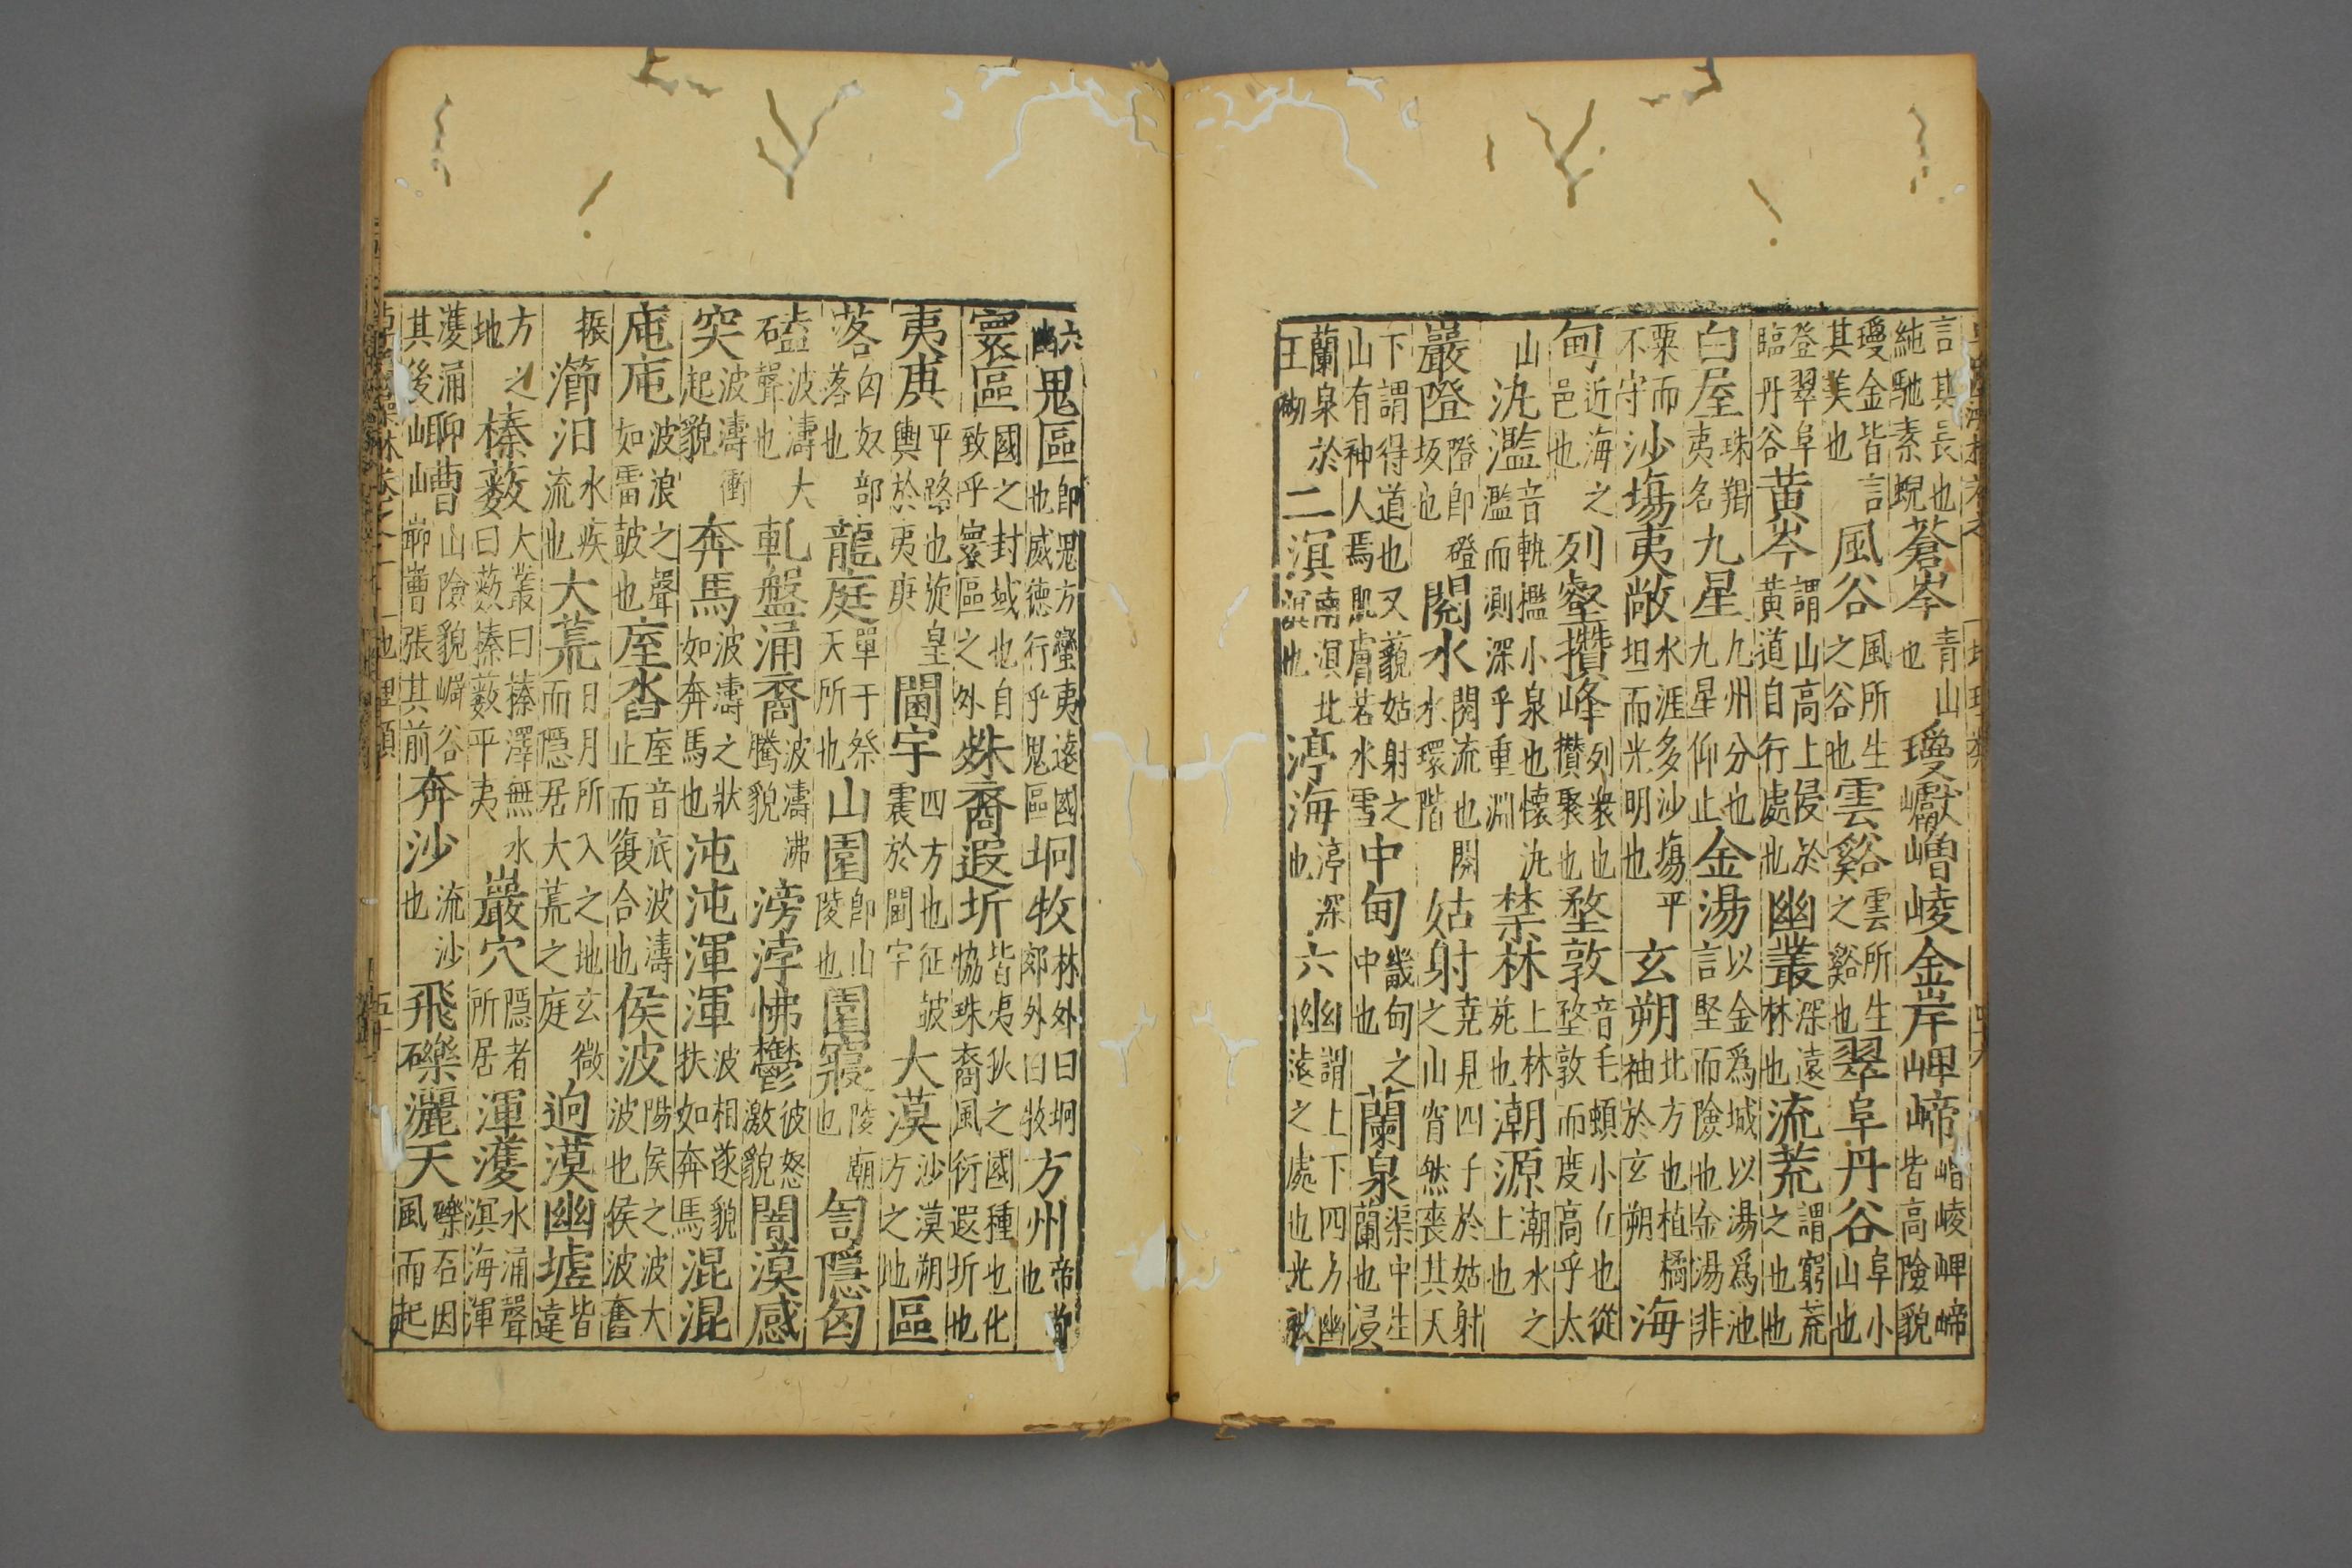 言其長也純馳素蜺蒼岑青山也瓊巘嶒崚金岸岬崹崚岬崹皆高險貌
瓊金皆言其美也風谷風所生之谷也雲谿雲所生之谿也翠阜丹谷阜小山也
登翠阜臨丹谷黄岑謂山高上侵於黄道自行處也幽叢深遠林也流荒謂窮荒之地也
白屋珠羯夷名九星九州分也九星仰止金湯以金爲城以湯爲池言堅而險也金湯非
粟而不守沙塲夷敞水涯多沙塲平坦而光明也玄朔北方也植橘柚於玄朔海
甸近海之邑也列壑攢峰列衆也攢聚也堥敦音毛頓小丘也從堥敦而度高乎太
山氿濫音軌檻小泉也懷氿濫而測深乎重淵禁林上林苑也潮源潮水之上也
巖隥隥即磴坂也閱水閱流也閱水環階姑射堯見四子於姑射之山窅然喪其天
下謂得道也又藐姑射之山有神人焉肌膚若水雪中甸畿甸之中也蘭泉渠中生蘭也浸
蘭泉於玉砌二溟南溟北溟也渟海渟深也六幽謂上下四方幽遠之處也光被
六幽鬼區即鬼方蠻夷遠國也威德行乎鬼區坰牧林外曰坰郊外曰牧方州帝首也
寰區國之封域也自致乎寰區之外殊裔遐圻皆夷狄之國種也化恊殊裔風衍遐圻也
夷庚平路也旋皇輿於夷庚閫宇四方也征皷震於閫宇大漠沙漠朔方之地區
落匈奴部落也龍庭單于祭天所也山園即山陵也園寢陵廟也訇隱匈
磕波濤大聲也軋盤涌裔波濤沸騰貌滂渤怫鬱彼怒激貌闇漠感
突波濤衝起貌奔馬波濤之狀如奔馬也沌沌渾渾波相逐貌扶如奔馬混混
庉庉波浪之聲如雷皷也庢沓庢音底波濤止而復合也侯波陽侯之波大波也侯波奮
振瀄汩水疾流也大荒日月所入之地玄微而隱居大荒之庭迥漠幽墟皆遠
方之地榛薮大叢曰榛澤無水曰薮榛薮平夷巖穴隱者所居渾濩水涌聲溟海渾
濩涌其後嶆山險貌谷嶆張其前奔沙流沙也飛礫灑天礫石因風而起